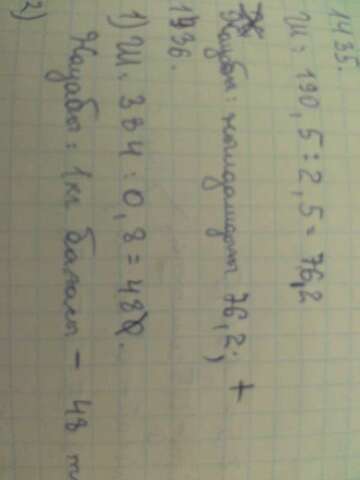 1435.
Ш: 190,5:2,5=76,2
Жауабы: жылдамдығы 76,2; +
1436.
1) Ш. 384:0,8=480.
Жауабы: 1 кг бағалы - 48 т
2)